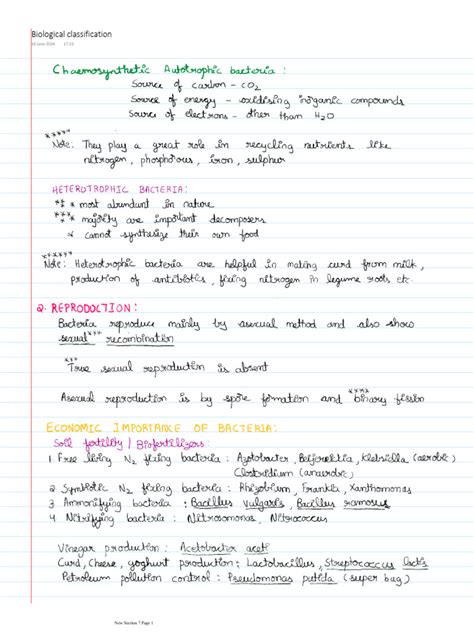 Biological classification
17:23
Chaemosynthetic Autotrophic bacteria :
Source of carbon - CO2
Source of energy - oxidising inorganic compounds
Source of electrons - other than H2O
*****
Note: They play a great role in recycling nutrients like
nitrogen, phosphorous, iron, sulphur
HETEROTROPHIC BACTERIA:
** * most abundant in nature
*** * majority are important decomposers
* cannot synthesize their own food
******
Note: Heterotrophic bacteria are helpful in making curd from milk,
production of antibiotics, fixing nitrogen in legume roots etc.
2. REPRODUCTION:
Bacteria reproduce mainly by asexual method and also show
sexual*** recombination
***
True sexual reproduction is absent
****
Asexual reproduction is by spore formation and binary fission
ECONOMIC IMPORTANCE OF BACTERIA:
Soil fertility / Biofertilizers:
1 Free living N2 fixing bacteria : Azotobacter, Beijerinckia, Klebsiella (aerobic)
Clostridium (anaerobic)
2 Symbiotic N2 fixing bacteria : Rhizobium, Frankia, Xanthomonas
3 Ammonifying bacteria : Bacillus vulgaris, Bacillus ramosus
4 Nitrifying bacteria : Nitrosomonas, Nitrococcus
Vinegar production : Acetobacter aceti
Curd, Cheese, yoghurt production: Lactobacillus, Streptococcus lactis
Petroleum pollution control : Pseudomonas putida (super bug)
New Section 7 Page 1